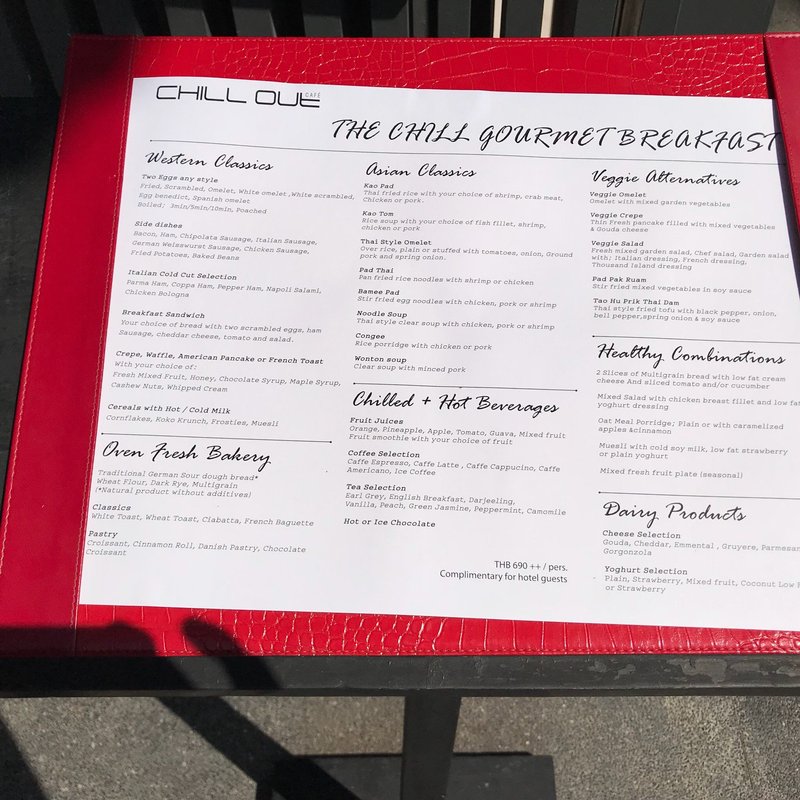 CHILL OUT CAFÉ
THE CHILL GOURMET BREAKFAST
Western Classics
Two Eggs any style
Fried, Scrambled, Omelet, White omelet ,White scrambled,
Egg benedict, Spanish omelet
Boiled; 3min/5min/10min, Poached
Side dishes
Bacon, Ham, Chipolata Sausage, Italian Sausage,
German Weisswurst Sausage, Chicken Sausage,
Fried Potatoes, Baked Beans
Italian Cold Cut Selection
Parma Ham, Coppa Ham, Pepper Ham, Napoli Salami,
Chicken Bologna
Breakfast Sandwich
Your choice of bread with two scrambled eggs, ham
Sausage, cheddar cheese, tomato and salad.
Crepe, Waffle, American Pancake or French Toast
With your choice of:
Fresh Mixed Fruit, Honey, Chocolate Syrup, Maple Syrup,
Cashew Nuts, Whipped Cream
Cereals with Hot / Cold Milk
Cornflakes, Koko Krunch, Frosties, Muesli
Oven Fresh Bakery
Traditional German Sour dough bread*
Wheat Flour, Dark Rye, Multigrain
(*Natural product without additives)
Classics
White Toast, Wheat Toast, Ciabatta, French Baguette
Pastry
Croissant, Cinnamon Roll, Danish Pastry, Chocolate
Croissant
Asian Classics
Kao Pad
Thai fried rice with your choice of shrimp, crab meat,
Chicken or pork.
Kao Tom
Rice soup with your choice of fish fillet, shrimp,
chicken or pork
Thai Style Omelet
Over rice, plain or stuffed with tomatoes, onion, Ground
pork and spring onion.
Pad Thai
Pan fried rice noodles with shrimp or chicken
Bamee Pad
Stir fried egg noodles with chicken, pork or shrimp
Noodle Soup
Thai style clear soup with chicken, pork or shrimp
Congee
Rice porridge with chicken or pork
Wonton soup
Clear soup with minced pork
Chilled + Hot Beverages
Fruit Juices
Orange, Pineapple, Apple, Tomato, Guava, Mixed fruit
Fruit smoothie with your choice of fruit
Coffee Selection
Caffe Espresso, Caffe Latte , Caffe Cappucino, Caffe
Americano, Ice Coffee
Tea Selection
Earl Grey, English Breakfast, Darjeeling,
Vanilla, Peach, Green Jasmine, Peppermint, Camomile
Hot or Ice Chocolate
THB 690 ++ / pers.
Complimentary for hotel guests
Veggie Alternatives
Veggie Omelet
Omelet with mixed garden vegetables
Veggie Crepe
Thin Fresh pancake filled with mixed vegetables
& Gouda cheese
Veggie Salad
Fresh mixed garden salad, Chef salad, Garden salad
with; Italian dressing, French dressing,
Thousand Island dressing
Pad Pak Ruam
Stir fried mixed vegetables in soy sauce
Tao Hu Prik Thai Dam
Thai style fried tofu with black pepper, onion,
bell pepper,spring onion & soy sauce
Healthy Combinations
2 Slices of Multigrain bread with low fat cream
cheese And sliced tomato and/or cucumber
Mixed Salad with chicken breast fillet and low fat
yoghurt dressing
Oat Meal Porridge; Plain or with caramelized
apples &cinnamon
Muesli with cold soy milk, low fat strawberry
or plain yoghurt
Mixed fresh fruit plate (seasonal)
Dairy Products
Cheese Selection
Gouda, Cheddar, Emmental , Gruyere, Parmesan
Gorgonzola
Yoghurt Selection
Plain, Strawberry, Mixed fruit, Coconut Low
or Strawberry